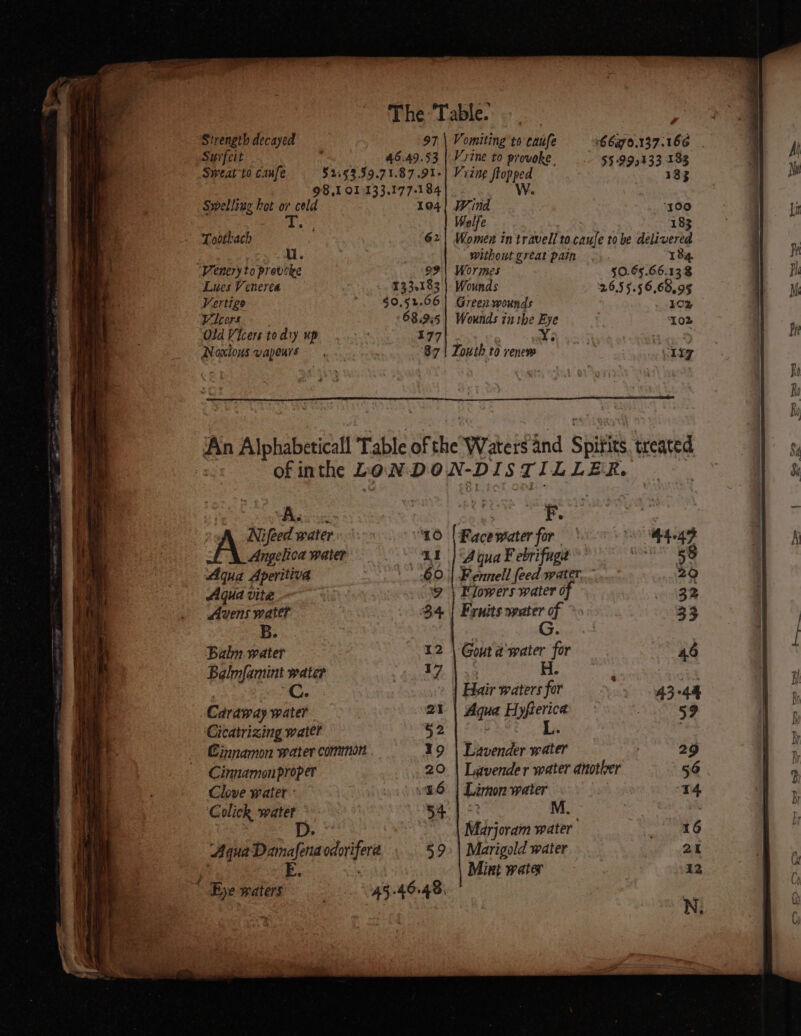 The Table.
Strength decayed 97
Surfeit 46.49.53
Sweat to cause 52.53.59.71.87.91.
98,101.133.177.184
Swelling hot or cold 104
T.
Toothach 62
U.
Venery to provoke 99
Lues Venerea 133.183
Vertigo 50.52.66
Vlcers 68.95
Old Vlcers to dry up 177
Noxious vapours 87
Vomiting to cause 66.70.137.166
Vrine to provoke 55.99,133 183
Vrine stopped 183
W.
Wind 100
Wolfe 183
Women in travell to cause to be delivered
without great pain 184
Wormes 50.65.66.138
Wounds 26.55.56,68,95
Green wounds 102
Wounds in the Eye 102
Y.
Youth to renew 117
An Alphabeticall Table of the Waters and Spirits treated
of in the LONDON-DISTILLER.
A.
ANifeed water 10
Angelica water 11
Aqua Aperitiva 60
Aqua vitæ 9
Avens water 34
B.
Balm water 12
Balmsamint water 17
C.
Caraway water 21
Cicatrizing water 52
Cinnamon water common 19
Cinnamon proper 20
Clove water 16
Colick water 54
D.
Aqua Damasena odorifera 59
E.
Eye waters 45.46.48.
F.
Face water for 44.47
Aqua Febrifuga 58
Fennell seed water 20
Flowers water of 32
Fruits water of 33
G.
Gout a water for 46
H.
Hair waters for 43.44
Aqua Hysterica 59
L.
Lavender water 29
Lavender water another 56
Limon water 14
M.
Marjoram water 16
Marigold water 21
Mint water 12
N.